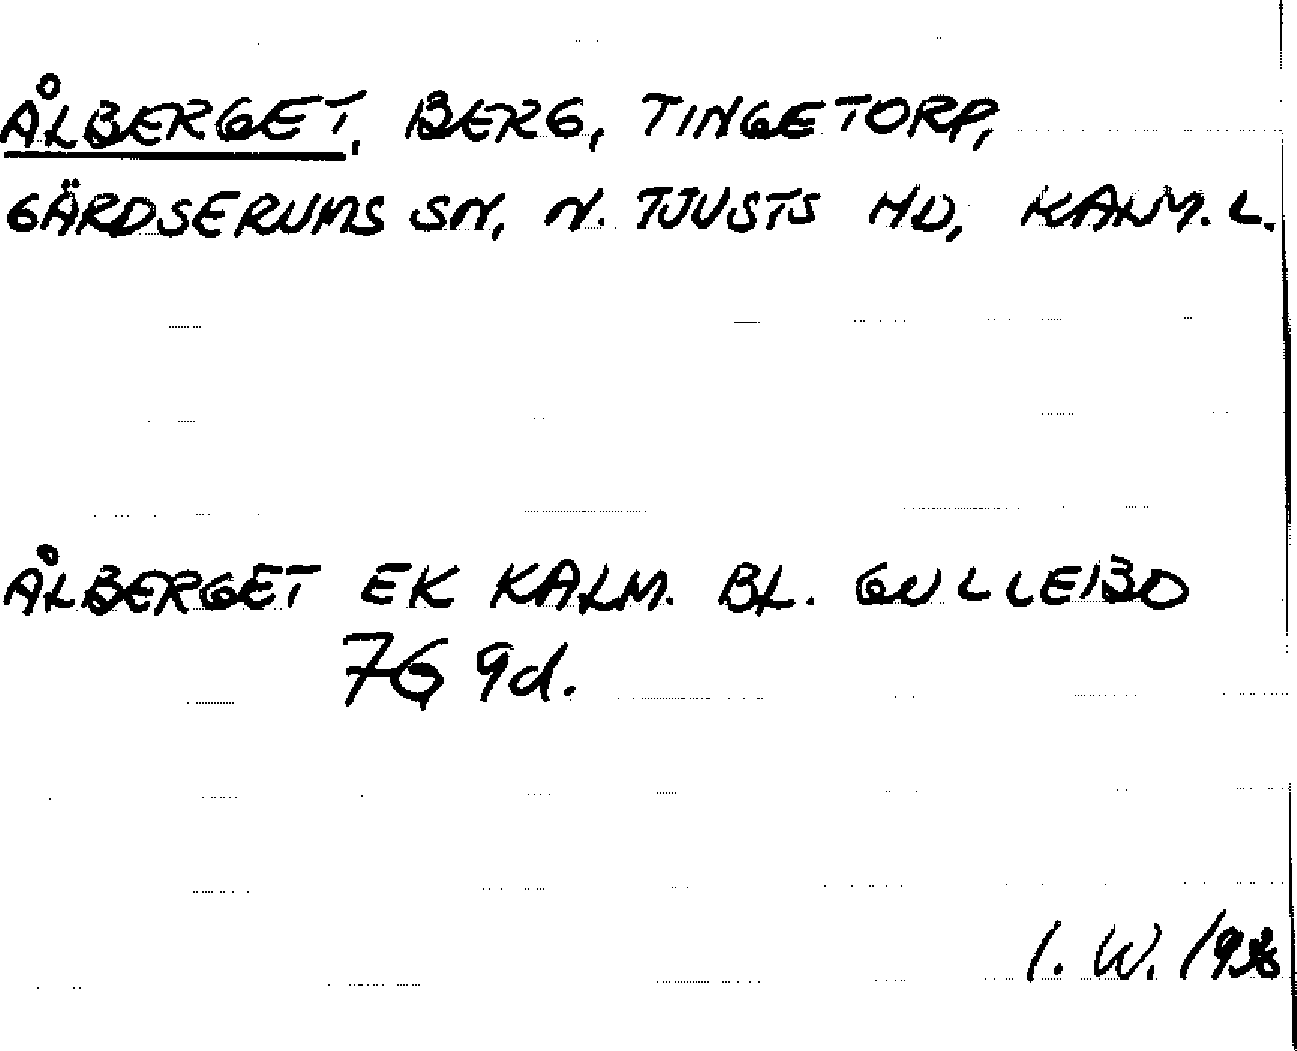 ÅLBERGET, BERG, TINGETORP,
GÄRDSERUMS SN, N. TJUSTS HD, KALM. L.
ÅLBERGET EK KALM. BL. GULLEBO
7G 9d.
I. W.